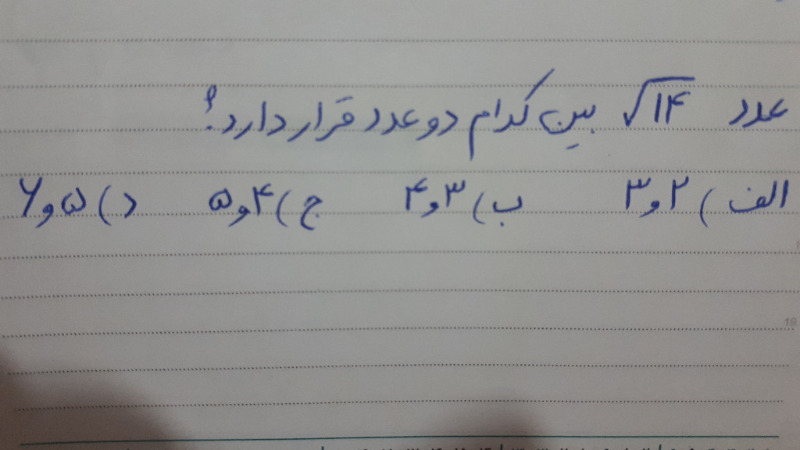 عدد √۱۴ بین کدام دو عدد قرار دارد؟
الف) ۲ و ۳ ب) ۳ و ۴ ج) ۴ و ۵ د) ۵ و ۶